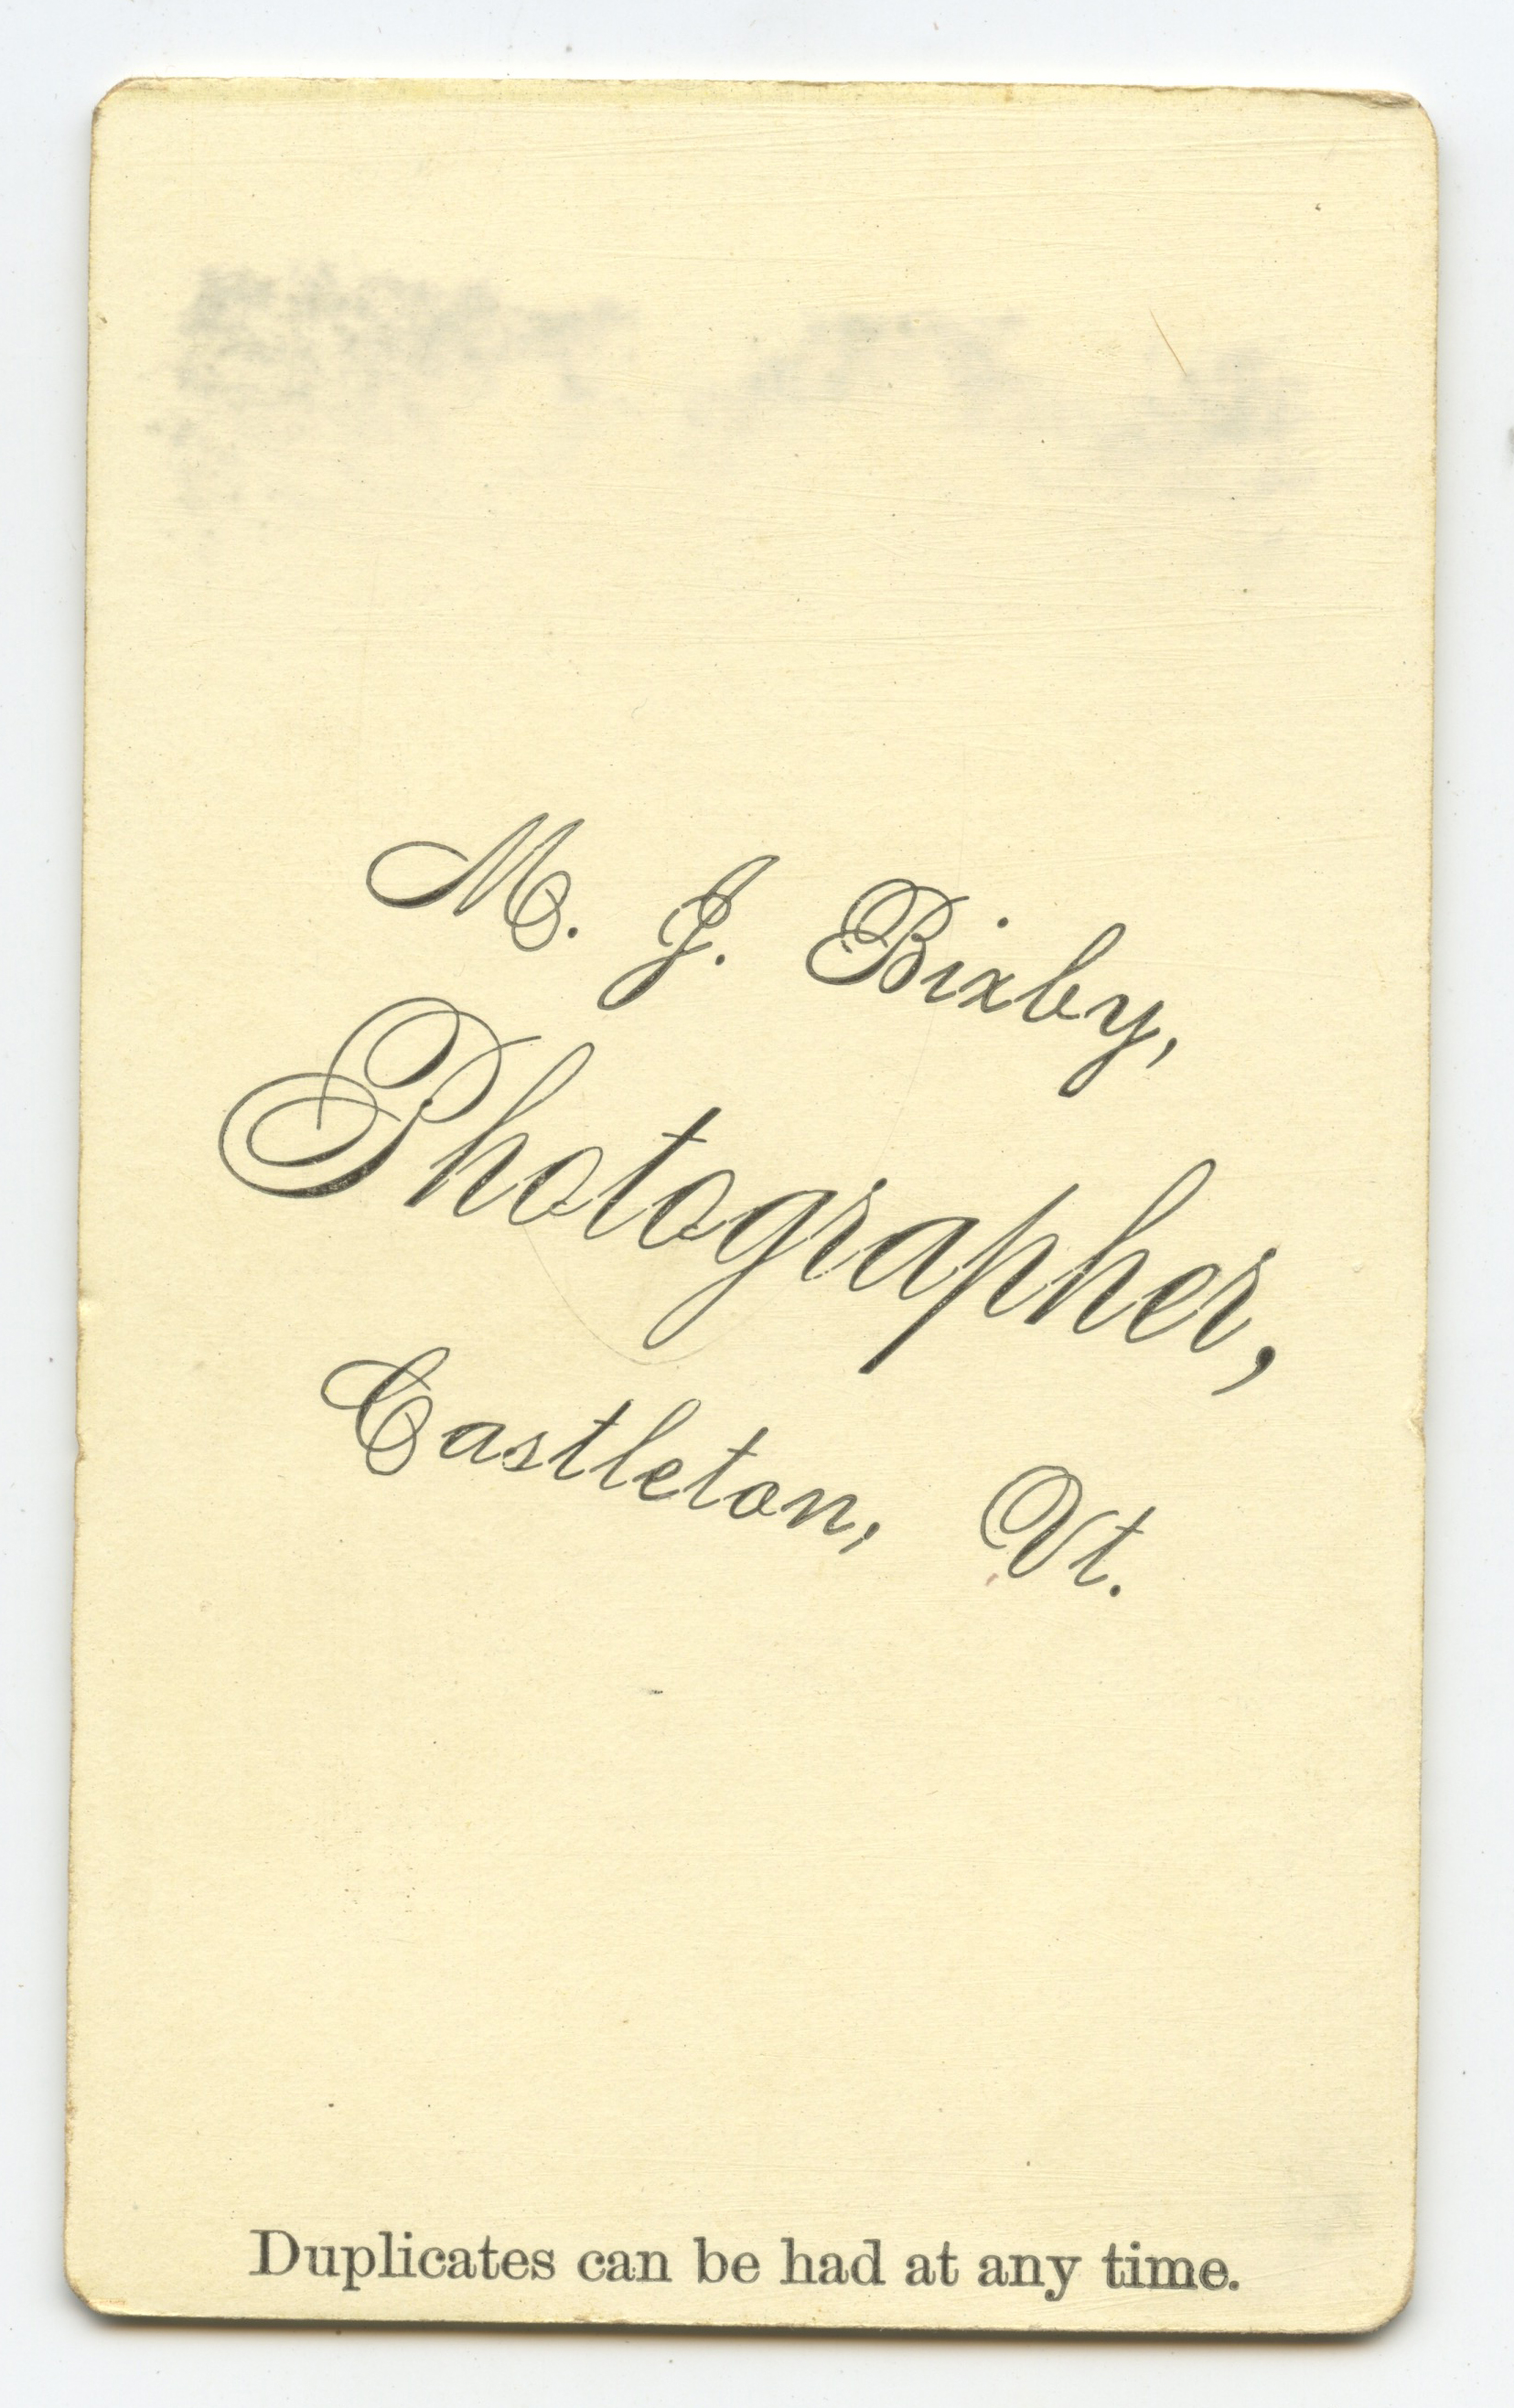 M. J. Bixby,
Photographer,
Castleton, Vt.
Duplicates can be had at any time.